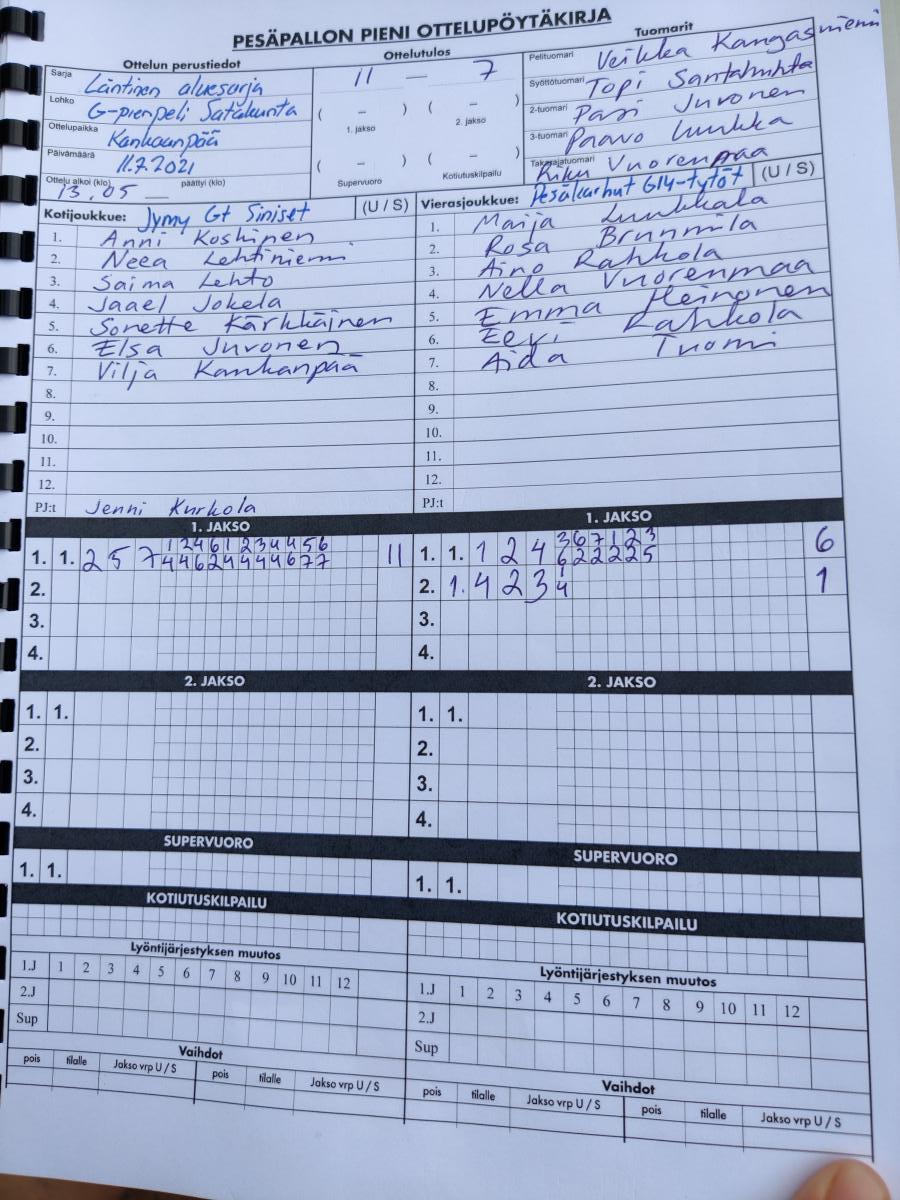 PESÄPALLON PIENI OTTELUPÖYTÄKIRJA
Ottelun perustiedot
Sarja Läntinen aluesarja
Lohko G-pienpeli Satakunta
Ottelupaikka Kankaanpää
Päivämäärä 11.7.2021
Ottelu alkoi (klo) 13.05 päättyi (klo)
Ottelutulos
11 — 7
( – ) ( – )
1. jakso 2. jakso
( – ) ( – )
Supervuoro Kotiutuskilpailu
Tuomarit
Pelituomari Veikka Kangasniemi
Syöttötuomari Topi Santahuhta
2-tuomari Pasi Juvonen
3-tuomari Paavo Luukka
Takarajatuomari Riku Vuorenpaa
Kotijoukkue: Jymy G1 Siniset (U / S)
1. Anni Koskinen
2. Neea Lehtiniemi
3. Saima Lehto
4. Jaael Jokela
5. Sonette Kärkkäinen
6. Elsa Juvonen
7. Vilja Kankanpää
8.
9.
10.
11.
12.
PJ:t Jenni Kurkola
Vierasjoukkue: Pesäkarhut G14-tytöt (U / S)
1. Maija Luukkala
2. Rosa Brunnila
3. Aino Rahkola
4. Nella Vuorenmaa
5. Emma Heinonen
6. Eevi Rahkola
7. Aida Tuomi
8.
9.
10.
11.
12.
PJ:t
1. JAKSO
1 2 4 6 1 2 3 4 4 5 6
1. 1. 2 5 7 4 4 6 2 4 4 4 4 6 7 7 11
2.
3.
4.
1. JAKSO
3 6 7 1 2 3
1. 1. 1 2 4 6 2 2 2 2 5 6
1
2. 1. 4 2 3 4 1
3.
4.
2. JAKSO
1. 1.
2.
3.
4.
2. JAKSO
1. 1.
2.
3.
4.
SUPERVUORO
1. 1.
SUPERVUORO
1. 1.
KOTIUTUSKILPAILU
Lyöntijärjestyksen muutos
1.J 1 2 3 4 5 6 7 8 9 10 11 12
2.J
Sup
Vaihdot
pois tilalle Jakso vrp U / S pois tilalle Jakso vrp U / S
KOTIUTUSKILPAILU
Lyöntijärjestyksen muutos
1.J 1 2 3 4 5 6 7 8 9 10 11 12
2.J
Sup
Vaihdot
pois tilalle Jakso vrp U / S pois tilalle Jakso vrp U / S